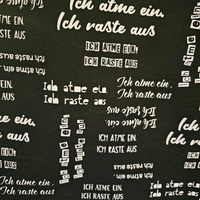 Ich atme ein.
Ich raste aus
ICH ATME EIN
ICH RASTE AUS
Ich atme ein.
Ich raste aus
Ich atme ein.
Ich raste aus
ICH ATME EIN.
ICH RASTE AUS
Ich atme ein.
Ich raste aus
Ich atme ein.
Ich raste aus
Ich atme ein.
Ich raste aus
Ich atme ein.
Ich raste aus
ICH ATME EIN
ICH RASTE AUS
ICH ATME EIN.
ICH RASTE AUS
Ich atme ein.
Ich raste aus
Ich atme ein.
Ich raste aus
ICH ATME EIN.
ICH RASTE AUS
Ich atme ein.
Ich raste aus